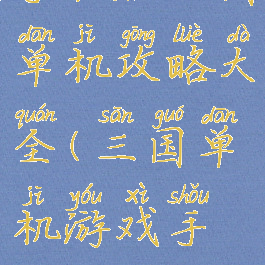 dān jī gōng lüè dà
单机攻略大
quán sān guó dān
全(三国单
jī yóu xì shǒu
机游戏手